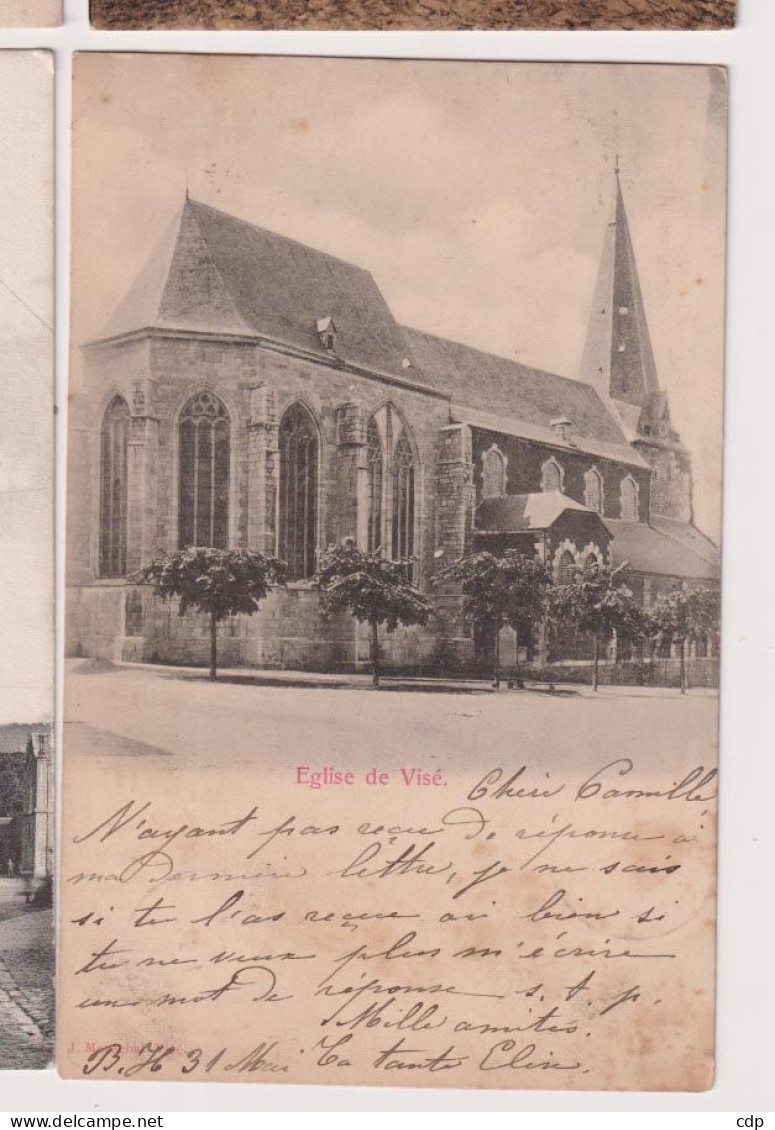 Eglise de Visé.
Chère Camille
N'ayant pas reçu de réponse à
ma dernière lettre, je ne sais
si tu l'as reçue ou bien si
tu ne veux plus m'écrire
un mot de réponse s. t. p.
Mille amités.
J. Visé.
B. H 31 Mai Ta tante Elise
cdp